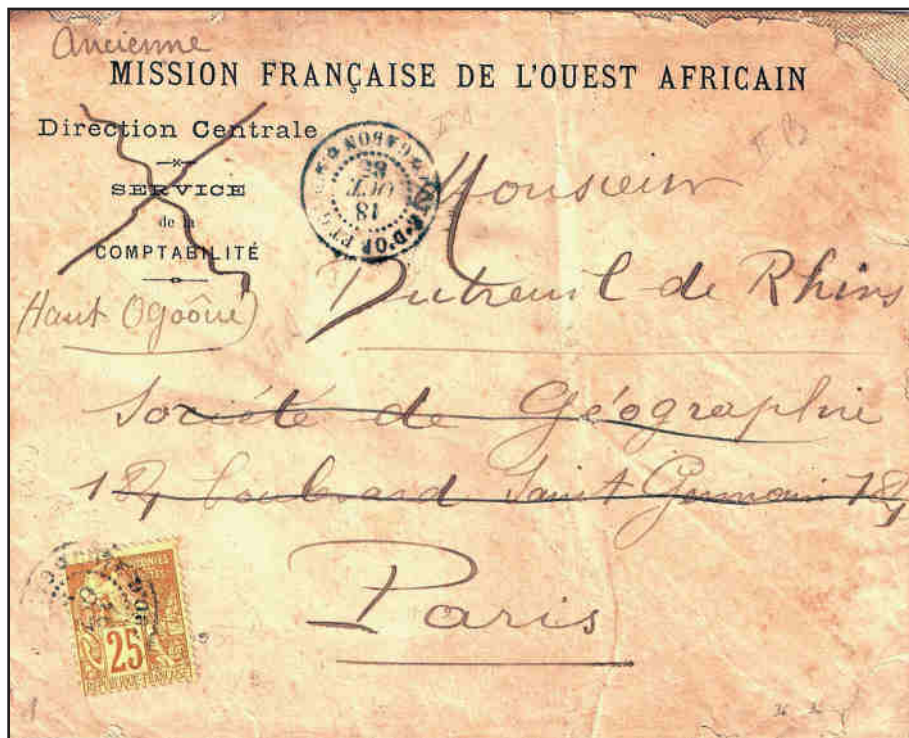 Ancienne
MISSION FRANÇAISE DE L'OUEST AFRICAIN
Direction Centrale
SERVICE
de la
COMPTABILITÉ
Haut Ogoôué)
GABON
18
OCT
Monsieur
Dutreuil de Rhins
Société de Géographie
184 boulevard Saint Germain 184
Paris
25
RÉPUBLIQUE FRANÇAISE